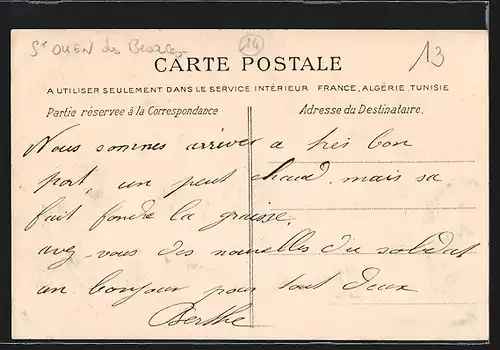 St OUEN des Besaces
14
13
CARTE POSTALE
A UTILISER SEULEMENT DANS LE SERVICE INTÉRIEUR FRANCE, ALGÉRIE, TUNISIE
Partie réservée à la Correspondance
Adresse du Destinataire.
Nous sommes arriver a très bon
port, un peut chaud, mais sa
fait fondre la graisse.
avez-vous des nouvelles du soldat
un bonjour pour tout deux
Berthe